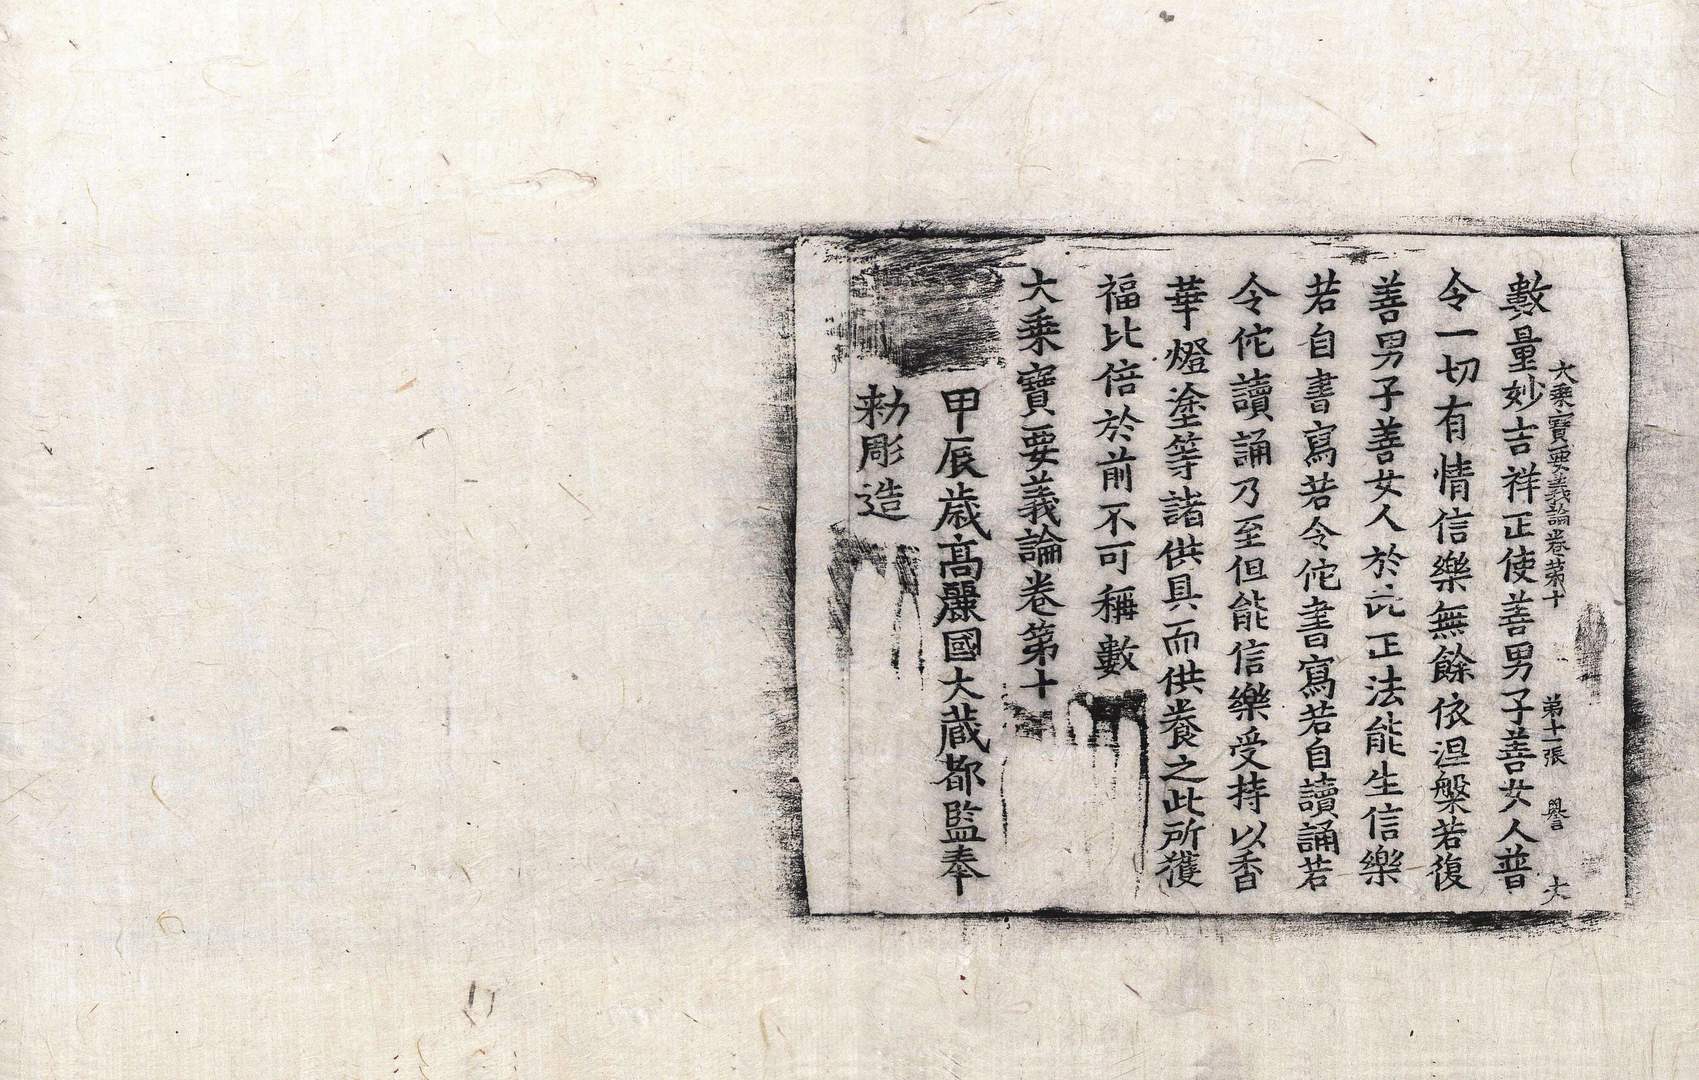 大乘寶要義論卷第十　第十一張　譽
數量妙吉祥正使善男子善女人普
令一切有情信樂無餘依涅槃若復
善男子善女人於此正法能生信樂
若自書寫若令佗書寫若自讀誦若
令佗讀誦乃至但能信樂受持以香
華燈塗等諸供具而供養之此所獲
福比倍於前不可稱數
大乘寶要義論卷第十
甲辰歲高麗國大藏都監奉
勅彫造